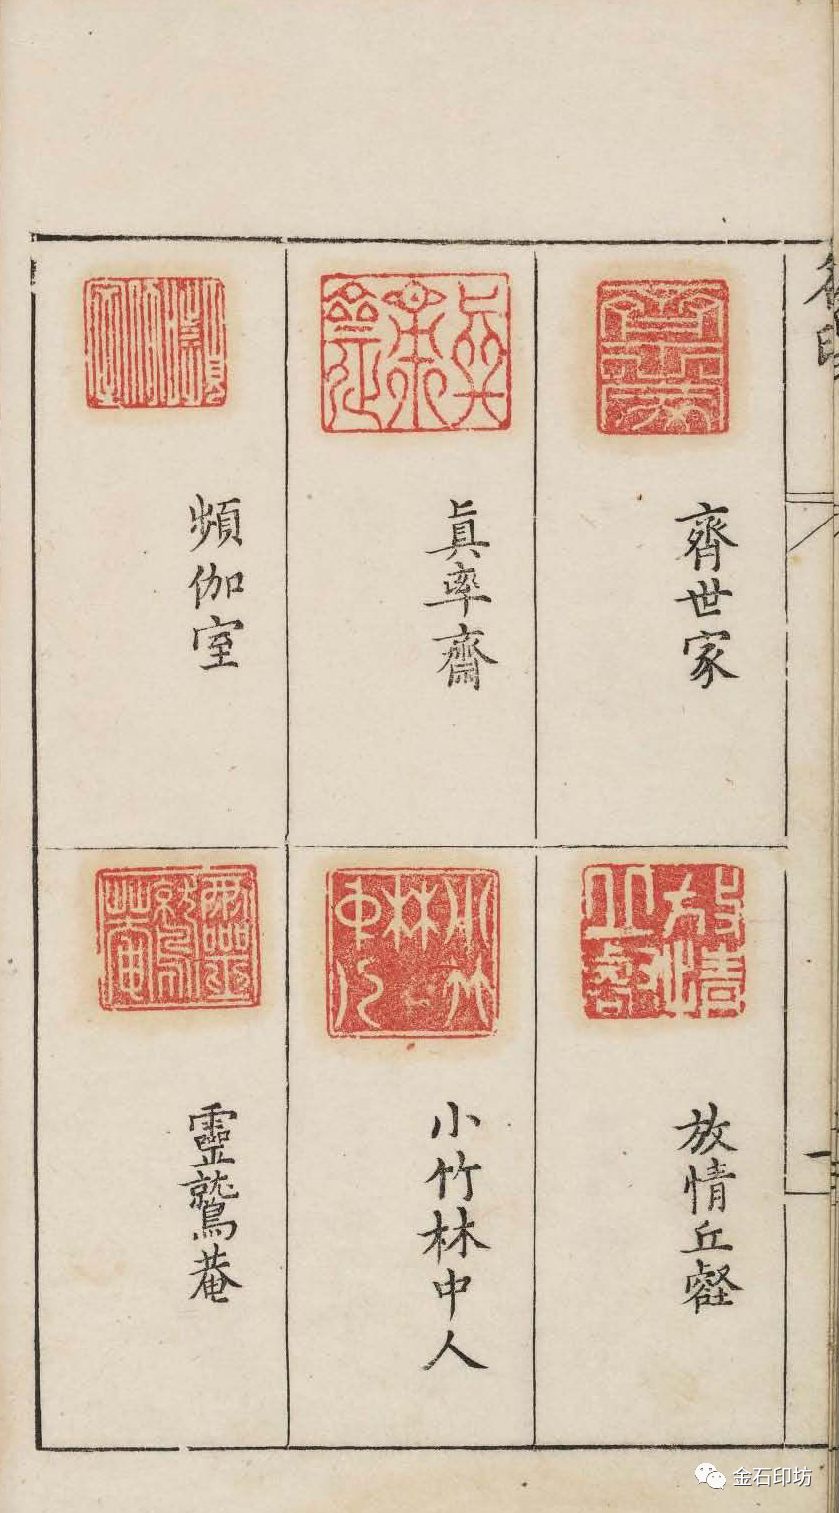 齊世家
放情丘壑
眞率齋
小竹林中人
頻伽室
靈鷲菴
金石印坊